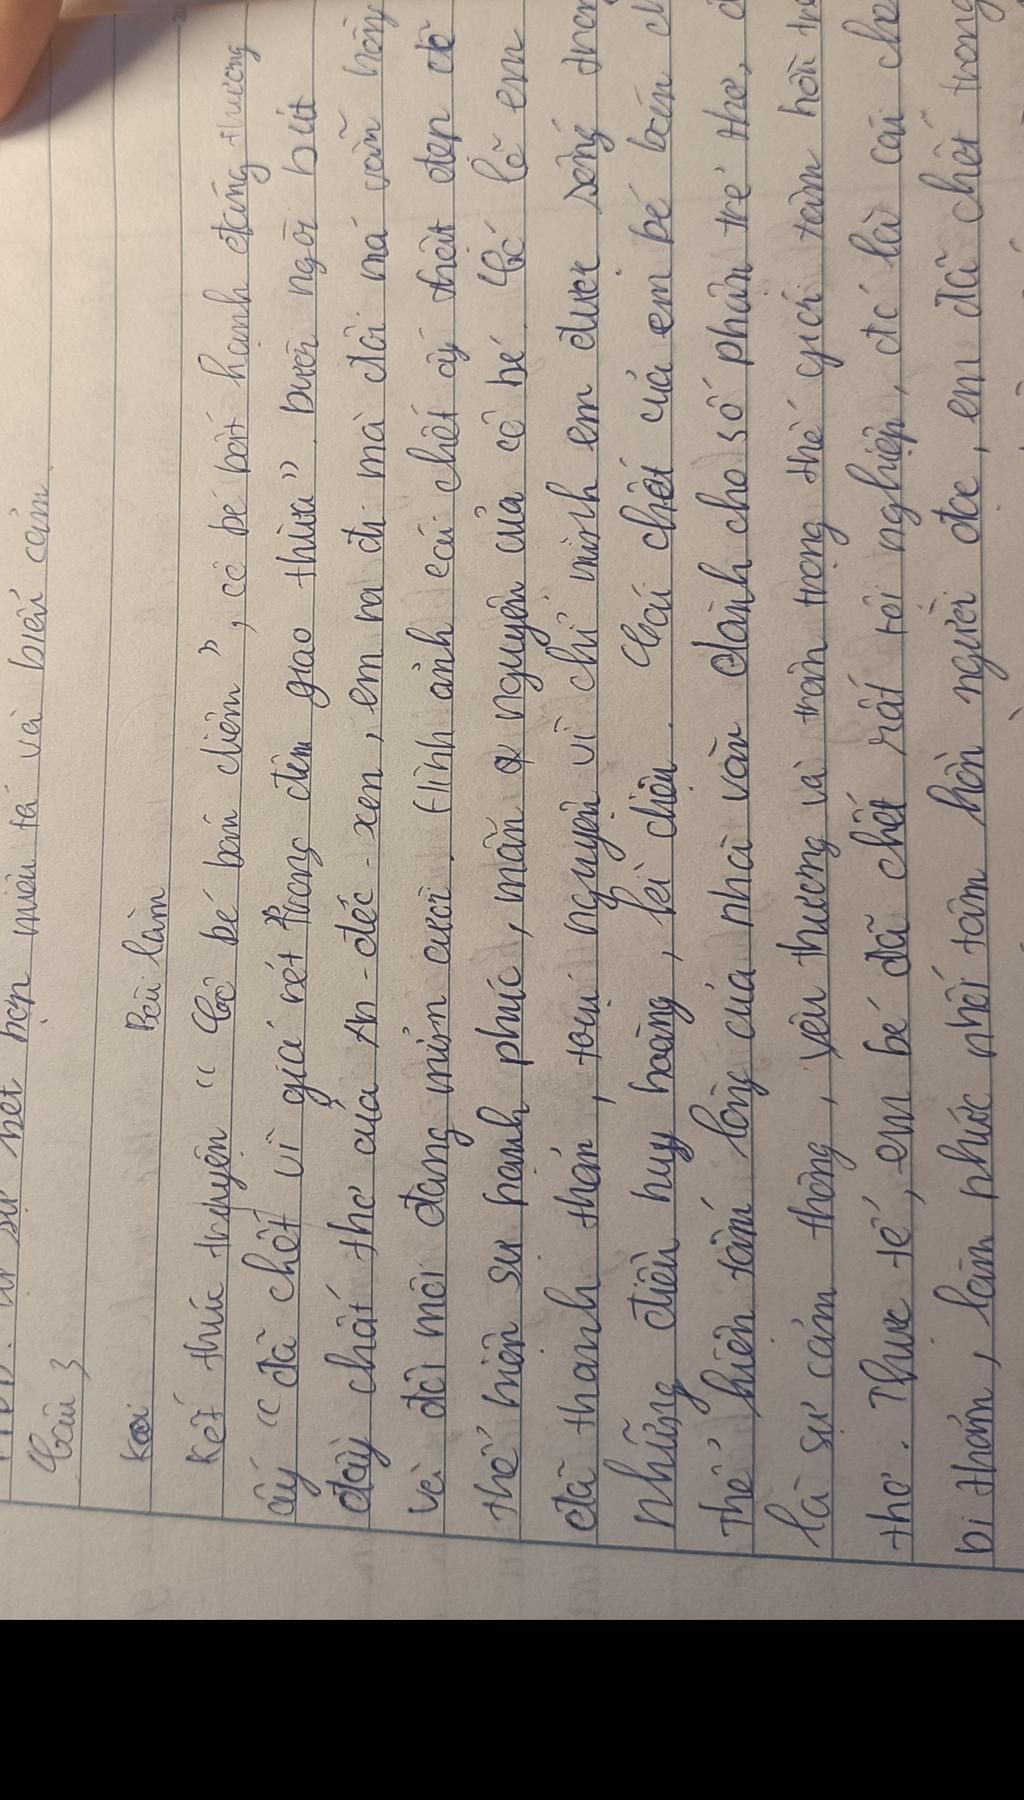 hợp miêu tả và biểu cảm
Câu 3
Bài làm
Kết thúc truyện "Cô bé bán diêm", cô bé bất hạnh đáng thương
ấy "đã chết vì giá rét trong đêm giao thừa" dưới ngòi bút
đầy chất thơ của An-đéc-xen, em ra đi mà đôi má vẫn hồng
và đôi môi đang mỉm cười. Hình ảnh cái chết ấy thật đẹp đã
thể hiện sự hạnh phúc, mãn nguyện của cô bé. Có lẽ em
đã thanh thản, toại nguyện vì chỉ mình em được sống
những điều huy hoàng, kì diệu. Cái chết của em bé bán
thể hiện tấm lòng của nhà văn dành cho số phận trẻ thơ,
là sự cảm thông, yêu thương và trân trọng thế giới tâm hồn
thơ. Thực tế, em bé đã chết rất tội nghiệp, đó là cái
bi thảm, làm phức nhối tâm hồn người đọc, em đã chết trong